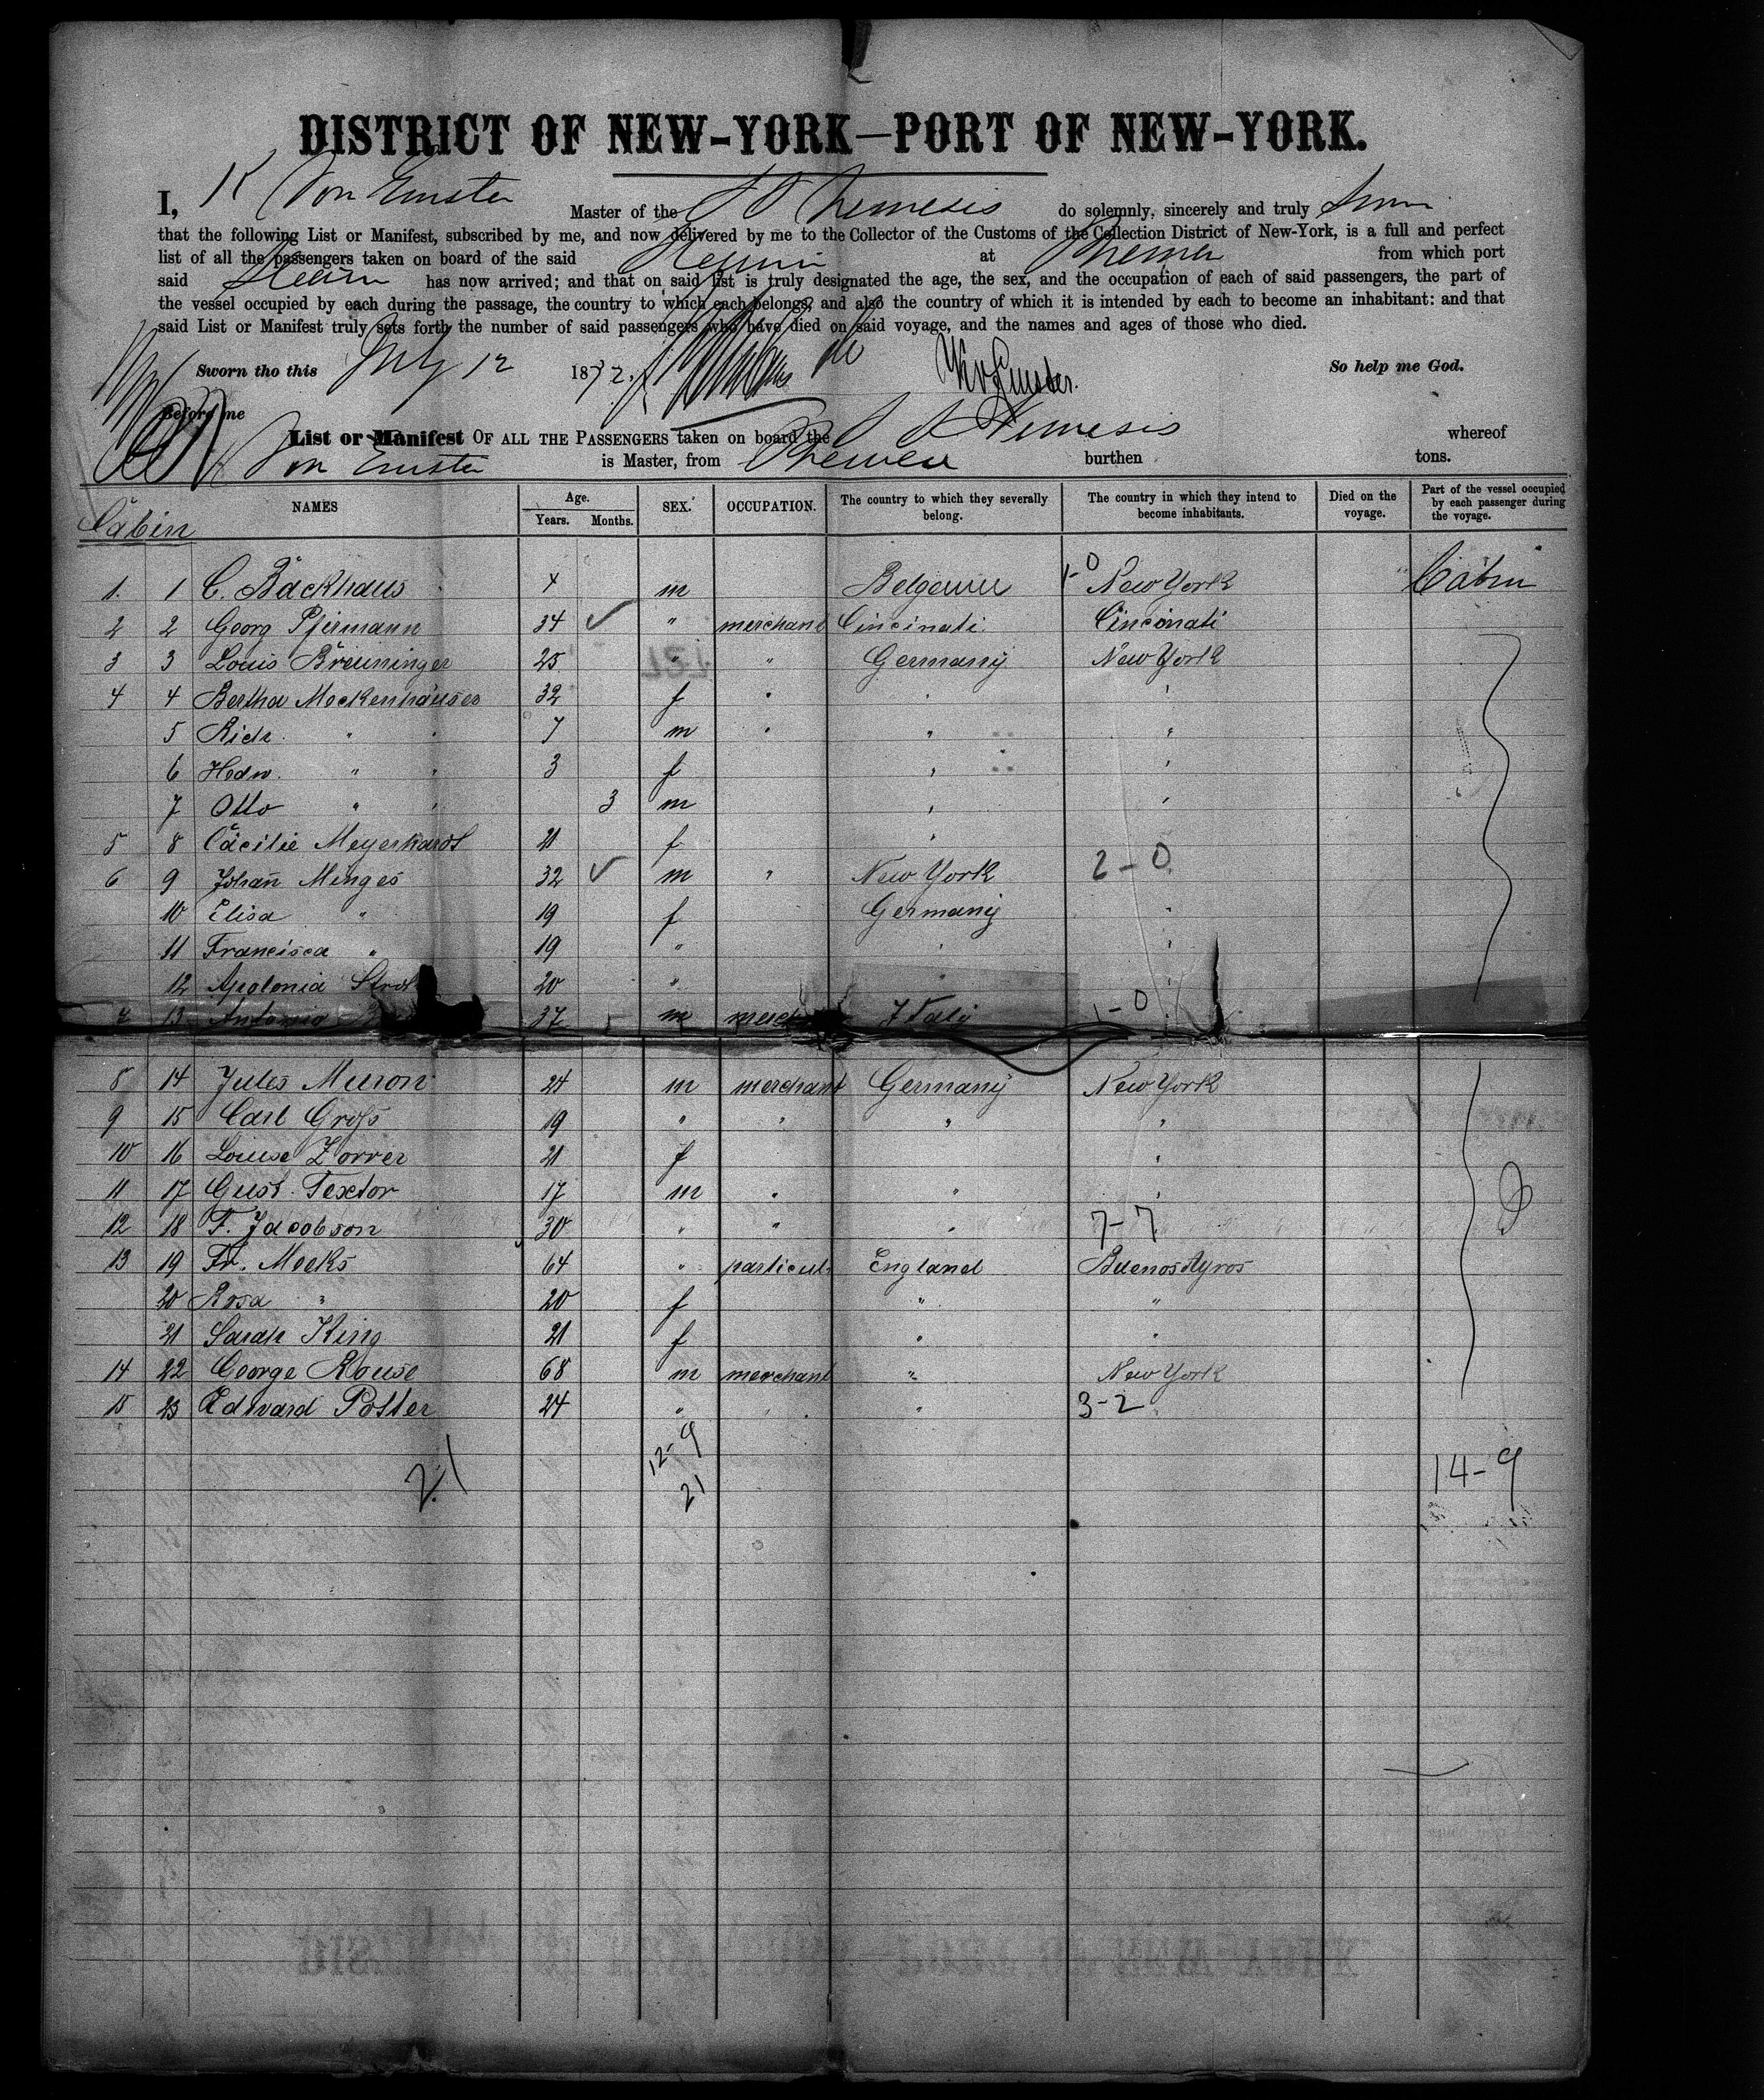 DISTRICT OF NEW-YORK—PORT OF NEW-YORK.
I, K Von Emster Master of the S S Nemesis do solemnly, sincerely and truly
that the following List or Manifest, subscribed by me, and now delivered by me to the Collector of the Customs of the Collection District of New-York, is a full and perfect
list of all the passengers taken on board of the said at Bremen from which port
said has now arrived; and that on said list is truly designated the age, the sex, and the occupation of each of said passengers, the part of
the vessel occupied by each during the passage, the country to which each belongs, and also the country of which it is intended by each to become an inhabitant: and that
said List or Manifest truly sets forth the number of said passengers who have died on said voyage, and the names and ages of those who died.
Sworn tho this July 12 1872. So help me God.
Before me
List or Manifest OF ALL THE PASSENGERS taken on board the S S Nemesis whereof
K Von Emster is Master, from Bremen burthen tons.
NAMES Age. Years. Months. SEX. OCCUPATION. The country to which they severally belong. The country in which they intend to become inhabitants. Died on the voyage. Part of the vessel occupied by each passenger during the voyage.
Cabin
1. 1 C. Backhaus m 1-0 New York Cabin
2 2 Georg Pfermann 34 ✓ " merchant Cincinati Cincinati
3 3 Louis Breuninger 25 " " Germany New York
4 4 Bertha Mockenhauser 32 f " " "
5 Rich. " " 7 m " " "
6 Hedw. " " 3 f " "
7 Otto " " 3 m " "
5 8 Cäcilie Meyerhardt 21 f "
6 9 Johan Minges 32 ✓ m " New York 2-0
10 Elisa " 19 f Germany "
11 Francisca " 19 " " "
12 Apolonia 20 " " "
7 13 Antonio 37 m Italy 1-0
8 14 Jules Muron 24 m merchant Germany New York
9 15 Carl Groß 19 " " " "
10 16 Louise Zorrer 21 f "
11 17 Gust. Textor 17 m " " "
12 18 F. Jacobson 30 " " " 7-7
13 19 Fr. Meeks 64 " particul England Buenos Ayros
20 Rosa " 20 f " "
21 Sarah King 21 f " "
14 22 George Rouse 68 m merchant " New York
15 23 Edward Potter 24 " " " 3-2
21 12-9 14-9
21